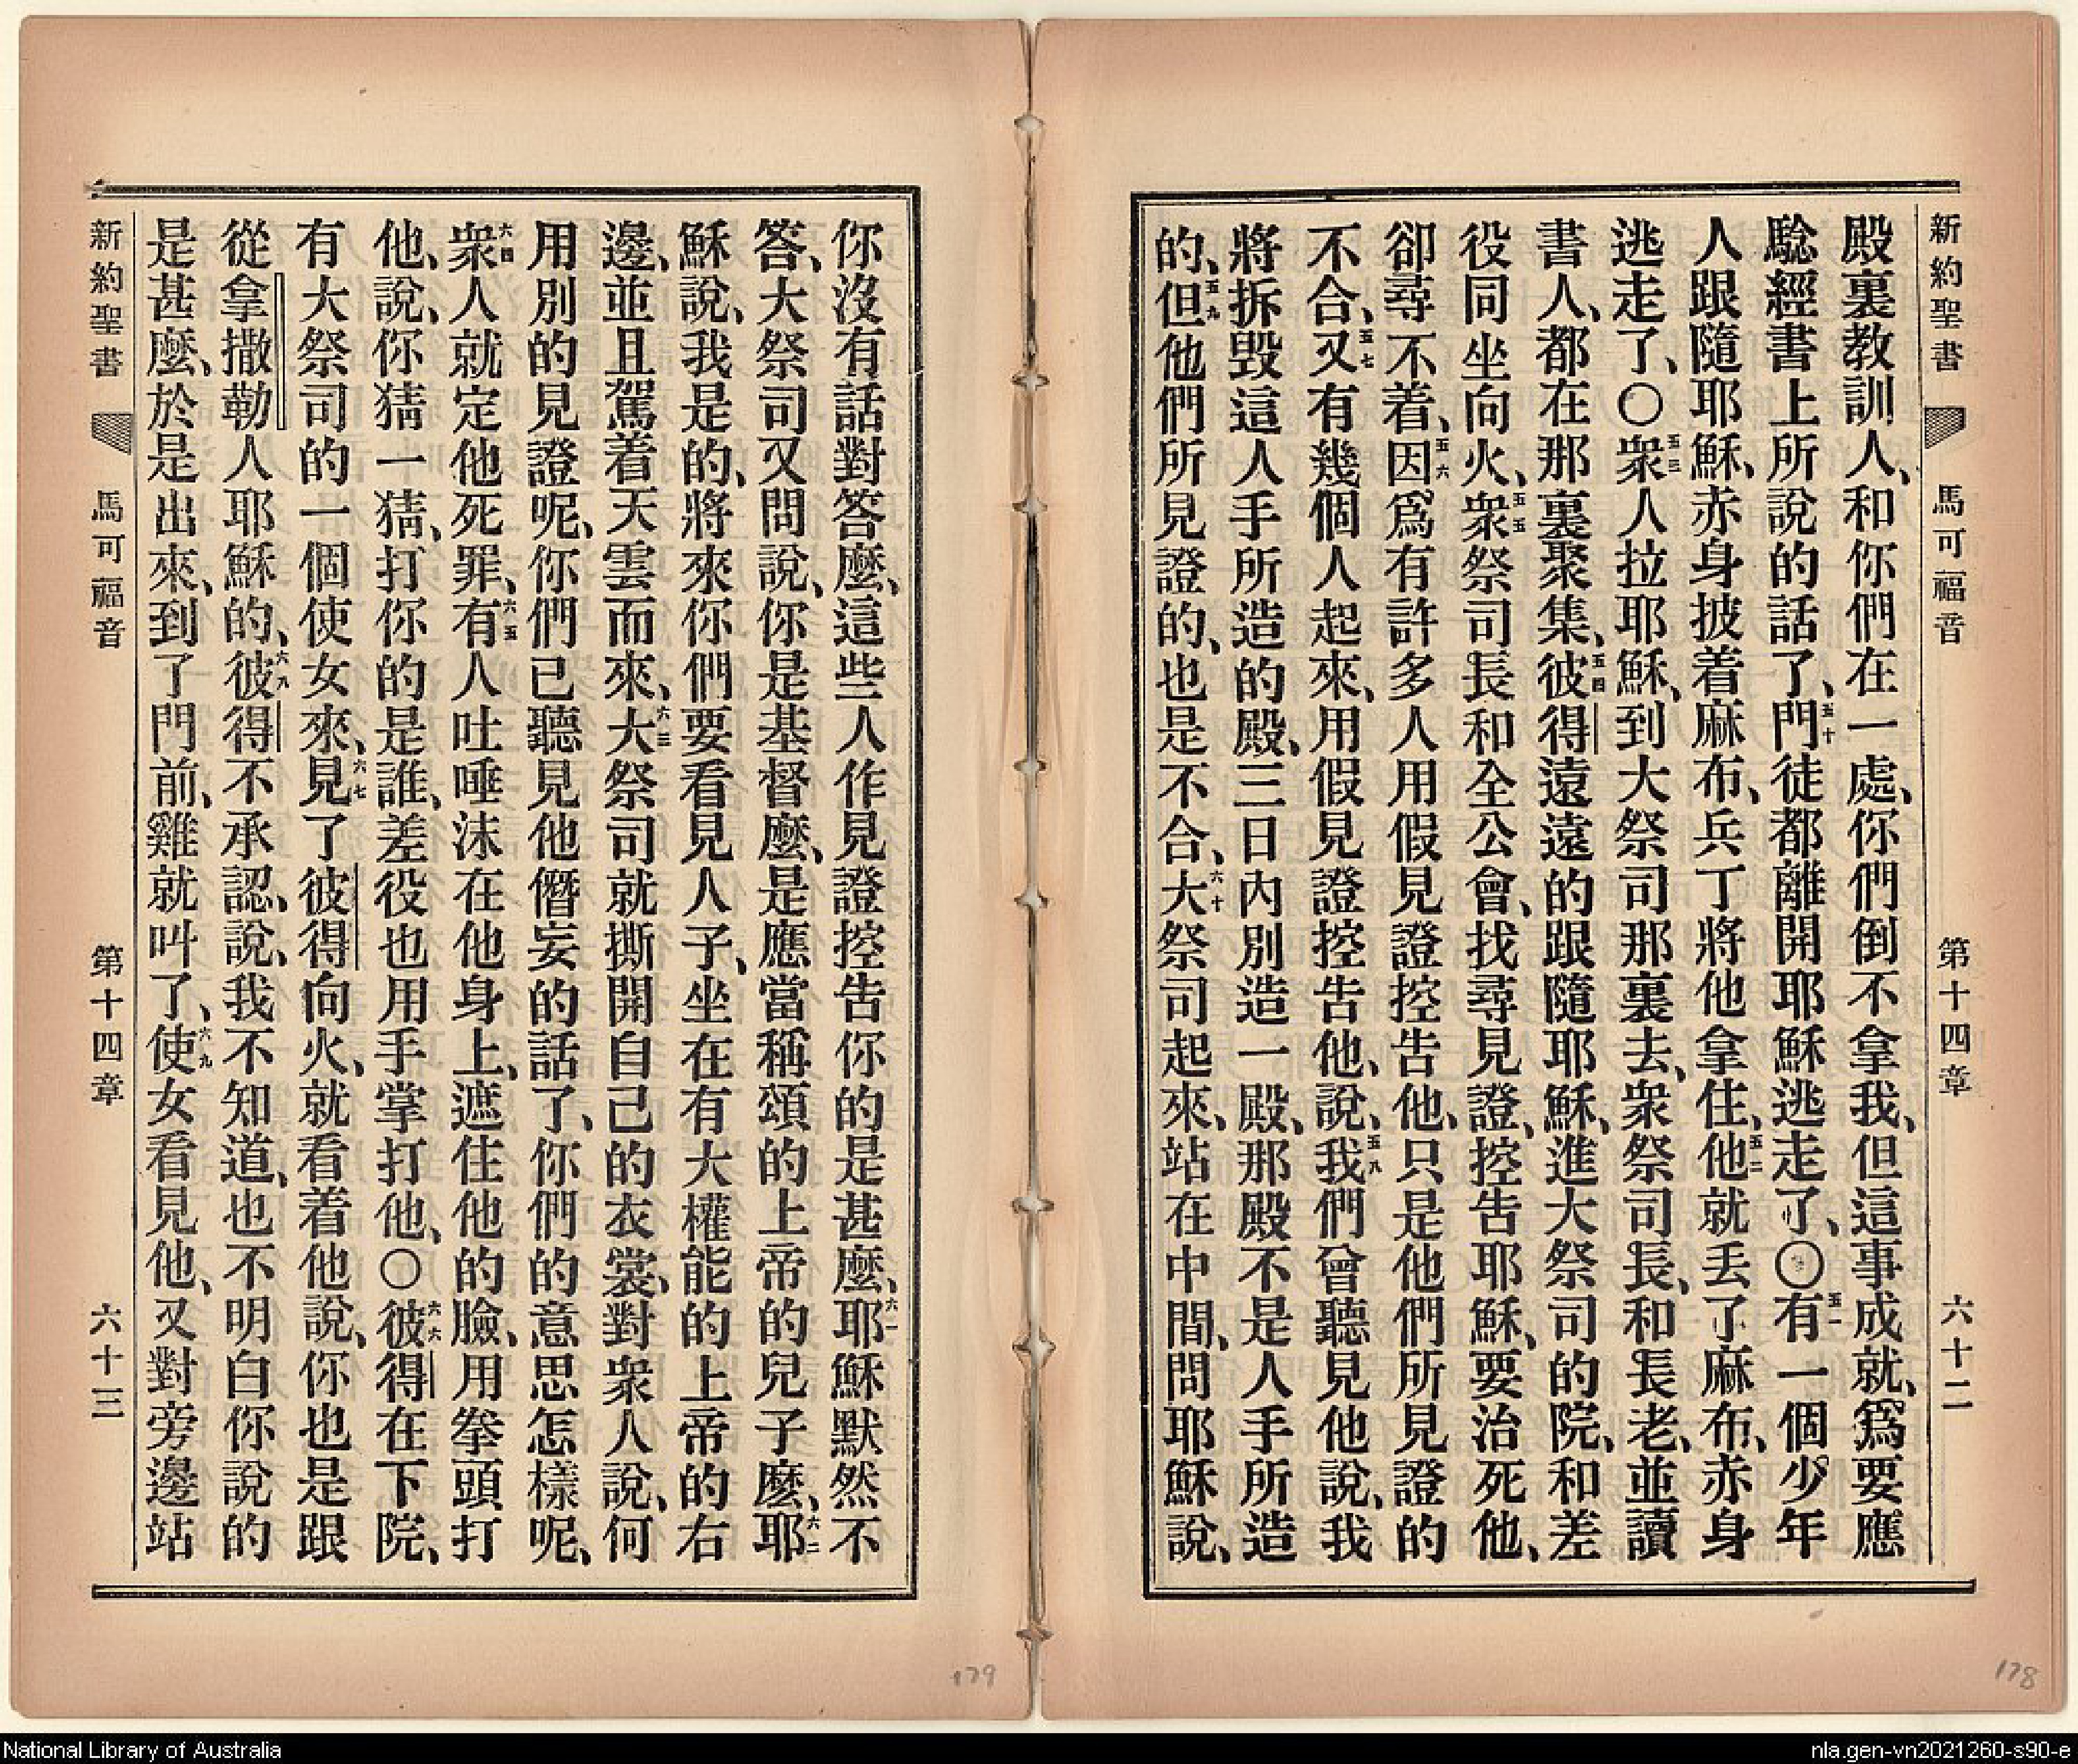 新約聖書 馬可福音 第十四章 六十二
殿裏教訓人、和你們在一處、你們倒不拿我、但這事成就、爲要應
騐經書上所說的話了、五十門徒都離開耶穌逃走了、〇五一有一個少年
人跟隨耶穌、赤身披着麻布、兵丁將他拿住、五二他就丟了麻布、赤身
逃走了、〇五三衆人拉耶穌、到大祭司那裏去、衆祭司長、和長老、並讀
書人、都在那裏聚集、五四彼得遠遠的跟隨耶穌、進大祭司的院、和差
役同坐向火、五五衆祭司長和全公會、找尋見證、控告耶穌、要治死他、
卻尋不着、五六因爲有許多人用假見證控告他、只是他們所見證的
不合、五七又有幾個人起來、用假見證控告他、說、五八我們曾聽見他說、我
將拆毀這人手所造的殿、三日內別造一殿、那殿不是人手所造
的、五九但他們所見證的、也是不合、六十大祭司起來、站在中間、問耶穌說、
你沒有話對答麼、這些人作見證控告你的是甚麼、六一耶穌默然不
答、大祭司又問說、你是基督麼、是應當稱頌的上帝的兒子麼、六二耶
穌說、我是的、將來你們要看見人子、坐在有大權能的上帝的右
邊、並且駕着天雲而來、六三大祭司就撕開自己的衣裳、對衆人說、何
用別的見證呢、你們已聽見他僭妄的話了、你們的意思怎樣呢、
六四衆人就定他死罪、六五有人吐唾沫在他身上、遮住他的臉、用拳頭打
他、說、你猜一猜、打你的是誰、差役也用手掌打他、〇六六彼得在下院、
有大祭司的一個使女來、六七見了彼得向火、就看着他說、你也是跟
從拿撒勒人耶穌的、六八彼得不承認、說、我不知道、也不明白你說的
是甚麼、於是出來、到了門前、雞就叫了、六九使女看見他、又對旁邊站
新約聖書 馬可福音 第十四章 六十三
179
178
National Library of Australia
nla.gen-vn2021260-s90-e